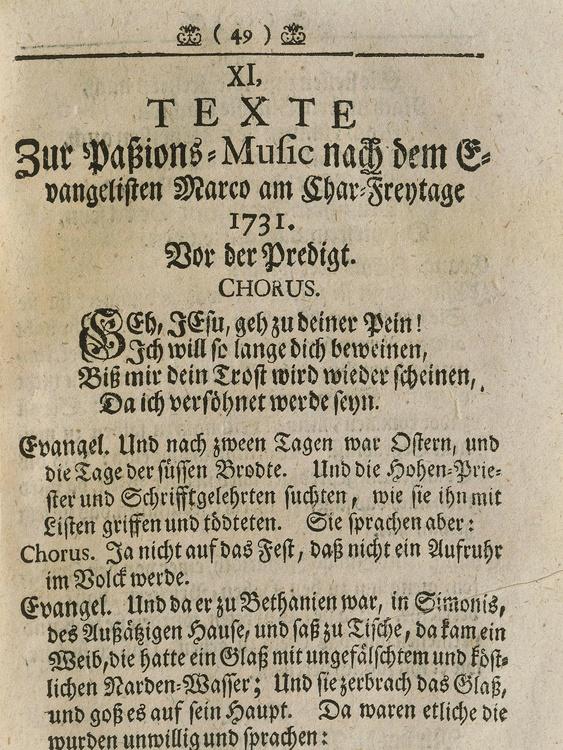 ( 49 )
XI,
TEXTE
Zur Paßions-Music nach dem E-
vangelisten Marco am Char-Freytage
1731.
Vor der Predigt.
CHORUS.
GEh, JEsu, geh zu deiner Pein!
Ich will so lange dich beweinen,
Biß mir dein Trost wird wieder scheinen,
Da ich versöhnet werde seyn.
Evangel. Und nach zween Tagen war Ostern, und
die Tage der süssen Brodte. Und die Hohen-Prie-
ster und Schrifftgelehrten suchten, wie sie ihn mit
Listen griffen und tödteten. Sie sprachen aber:
Chorus. Ja nicht auf das Fest, daß nicht ein Aufruhr
im Volck werde.
Evangel. Und da er zu Bethanien war, in Simonis,
des Außätzigen Hause, und saß zu Tische, da kam ein
Weib, die hatte ein Glaß mit ungefälschtem und köst-
lichen Narden-Wasser; Und sie zerbrach das Glaß,
und goß es auf sein Haupt. Da waren etliche die
wurden unwillig und sprachen: